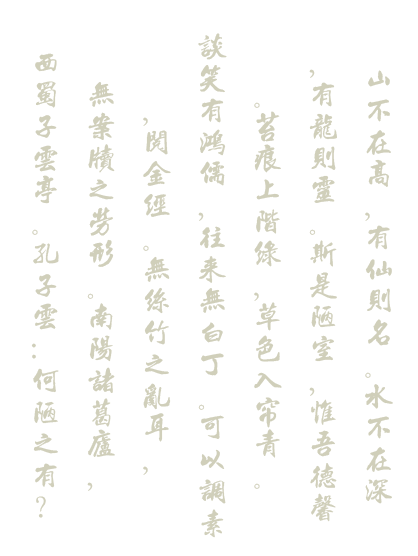 山不在高,有仙則名。水不在深
,有龍則靈。斯是陋室,惟吾德馨
。苔痕上階綠,草色入帘青。
談笑有鴻儒,往来無白丁。可以調素
,閱金經。無絲竹之亂耳,
無案牘之勞形。南陽諸葛廬,
西蜀子雲亭。孔子雲:何陋之有?